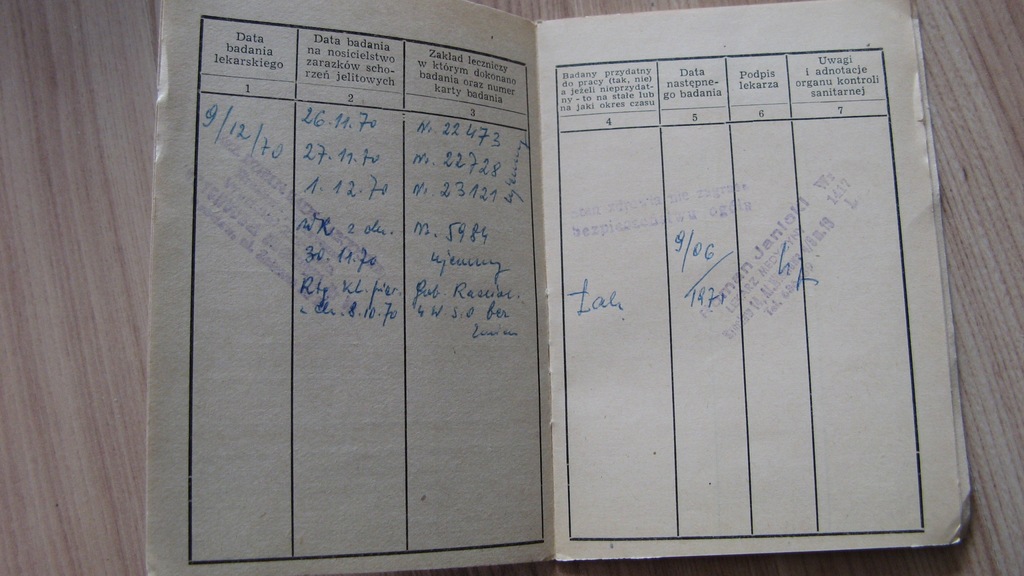 Data
badania
lekarskiego
Data badania
na nosicielstwo
zarazków scho-
rzeń jelitowych
Zakład leczniczy
w którym dokonano
badania oraz numer
karty badania
1
2
3
9/12/70
26.11.70
Nr. 22473
27.11.70
Nr. 22728
1.12.70
Nr. 23121
WR z dn.
Nr. 5984
30.11.70
ujemny
Rtg kl. pier.
z dn. 8.10.70
bez
zmian
Badany przydatny
do pracy (tak, nie)
a jeżeli nieprzydat-
ny - to na stałe lub
na jaki okres czasu
Data
następne-
go badania
Podpis
lekarza
Uwagi
i adnotacje
organu kontroli
sanitarnej
4
5
6
7
stan zdrowia nie zagraża
bezpieczeństwu
9/06
1971
Tak
Janicki